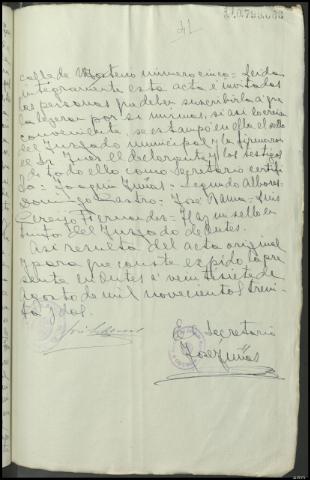 41
calle de Montero número cinco= Leídas
íntegramente esta acta é invitadas
las personas que deben suscribirla á que
la leyeran por sí mismas, si así lo creían
conveniente, se estampó en ella el sello
del Juzgado municipal y la firmaron
el Sr. Juez el declarante y los testigos
de todo ello como Secretario certifi
co= Joaquín = Segundo Albores
Domingo Castro= José Rama= Luis
Cerejo Fernandez= Hay un sello en
tinta del Juzgado de Outes.
Así resulta del acta original
y para que conste expido la pre
sente en Outes á veintisiete de
Agosto de mil novecientos trein
ta y dos.
El Secretario
José